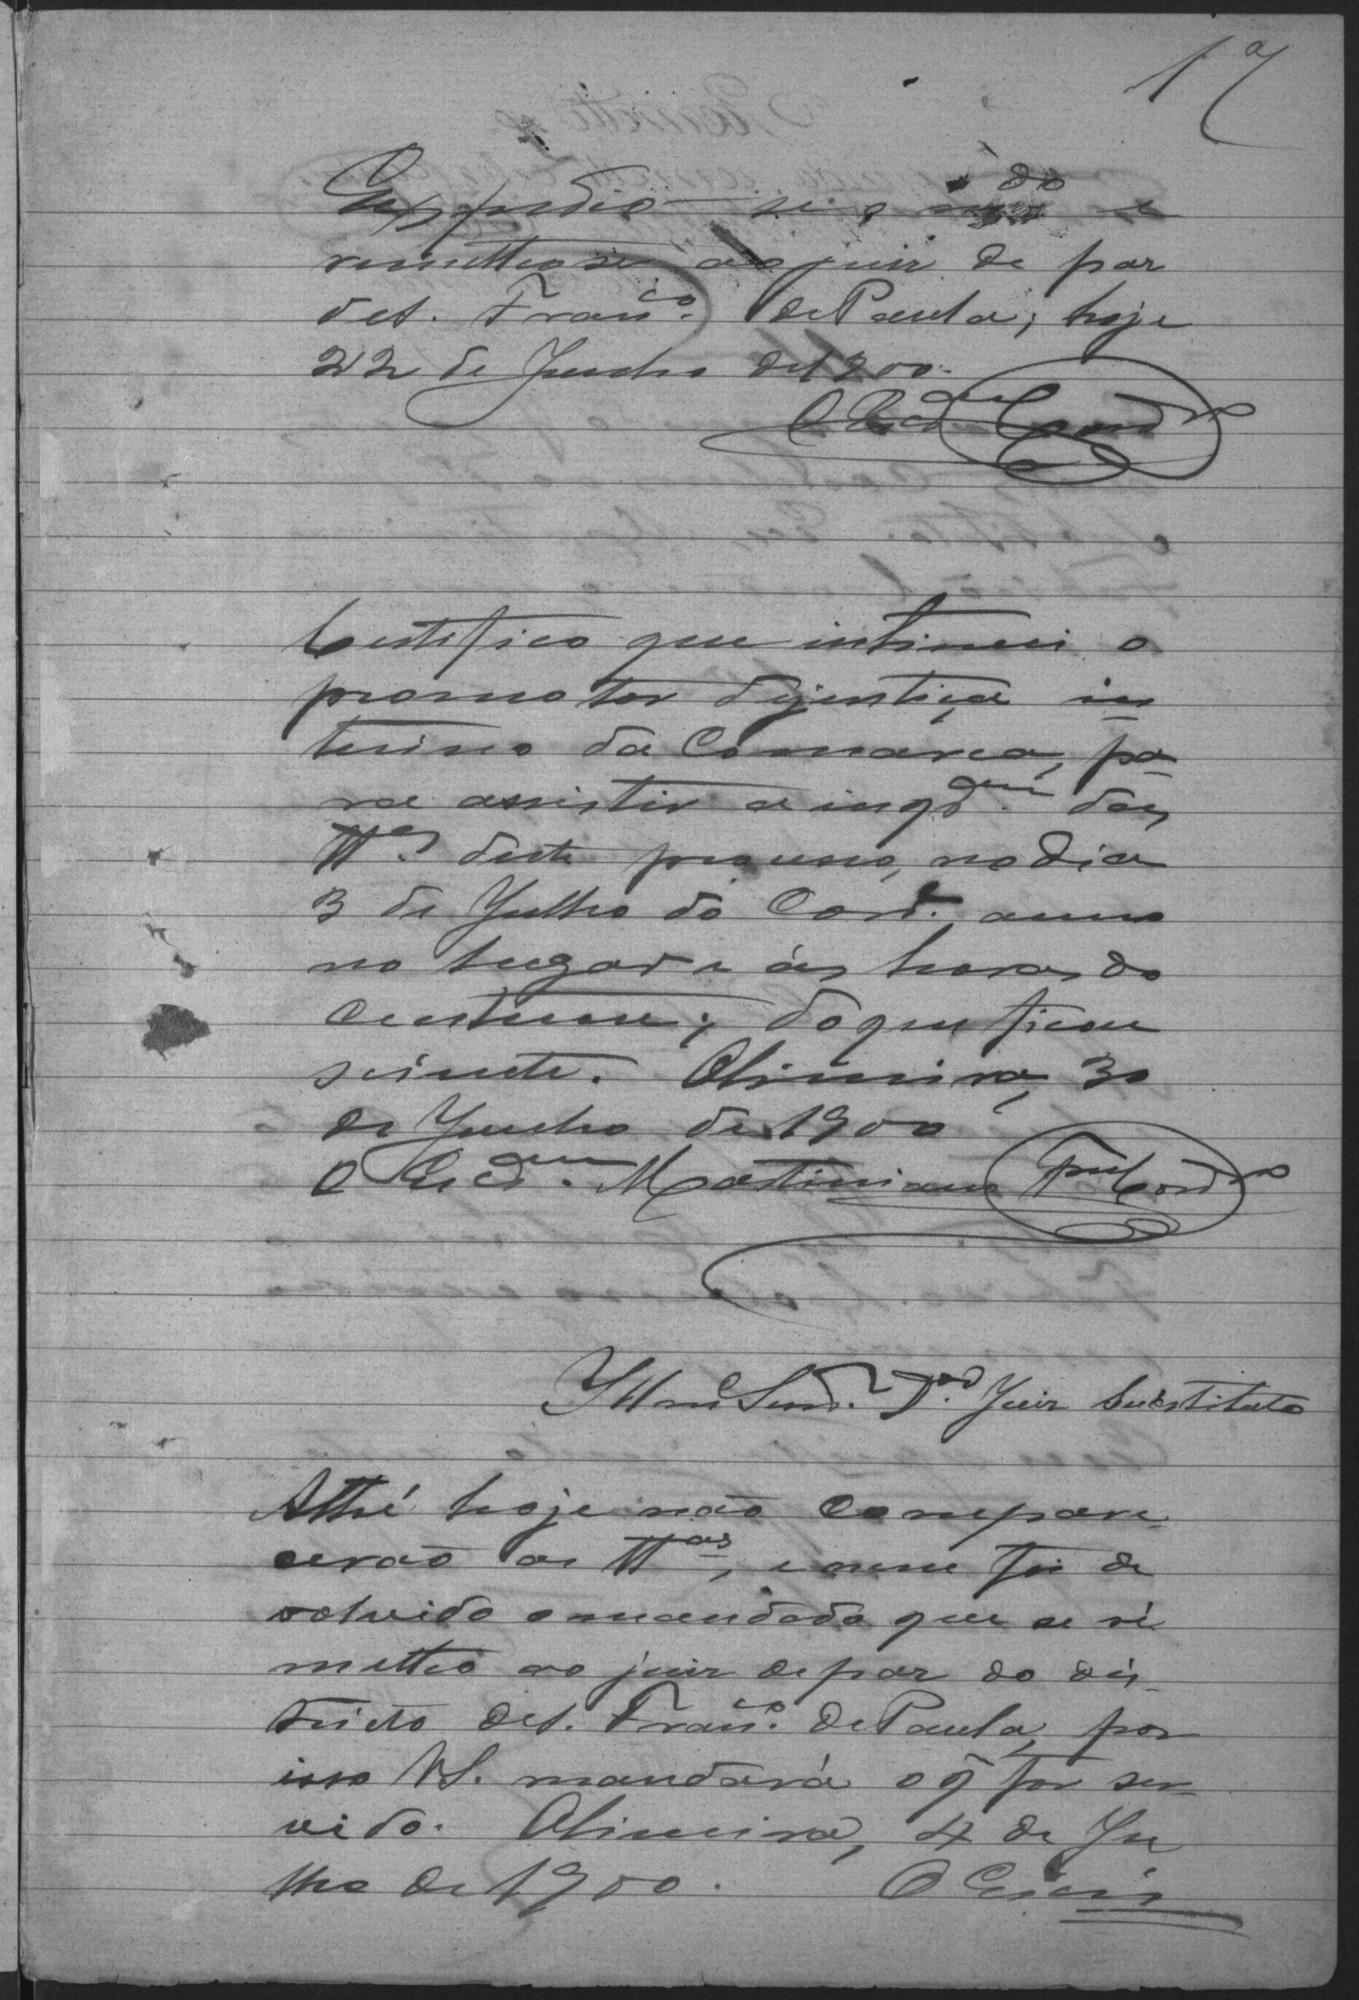 17
Expedio-se o m.do e
remetteo-se ao juiz de paz
de S. Fran.co de Paula, hoje
22 de Junho de 1900.
O Escr.am Cord.ro
Certifico que intimei o
promotor dejustiça in
terino da Comarca, pa-
ra assistir a inq.am das
TT.as deste processo, no dia
3 de Julho do Corr.te anno
no lugar e ás horas do
Custume; do que ficou
sciente. Oliveira, 30
de Junho de 1900
O Escr.am Martiniano Cord.ro
Illmo Snr. D.or Juiz Substituto
Athé hoje não compare-
cerão as TT.as, e nem foi de
volvido o mandado que se re
metteo ao juiz de paz do dis-
tricto de S. Fran.co de Paula, por
isso V.S. mandará o q̃ for ser-
vido. Oliveira, 4 de Ju
lho de 1900. O Escr.am